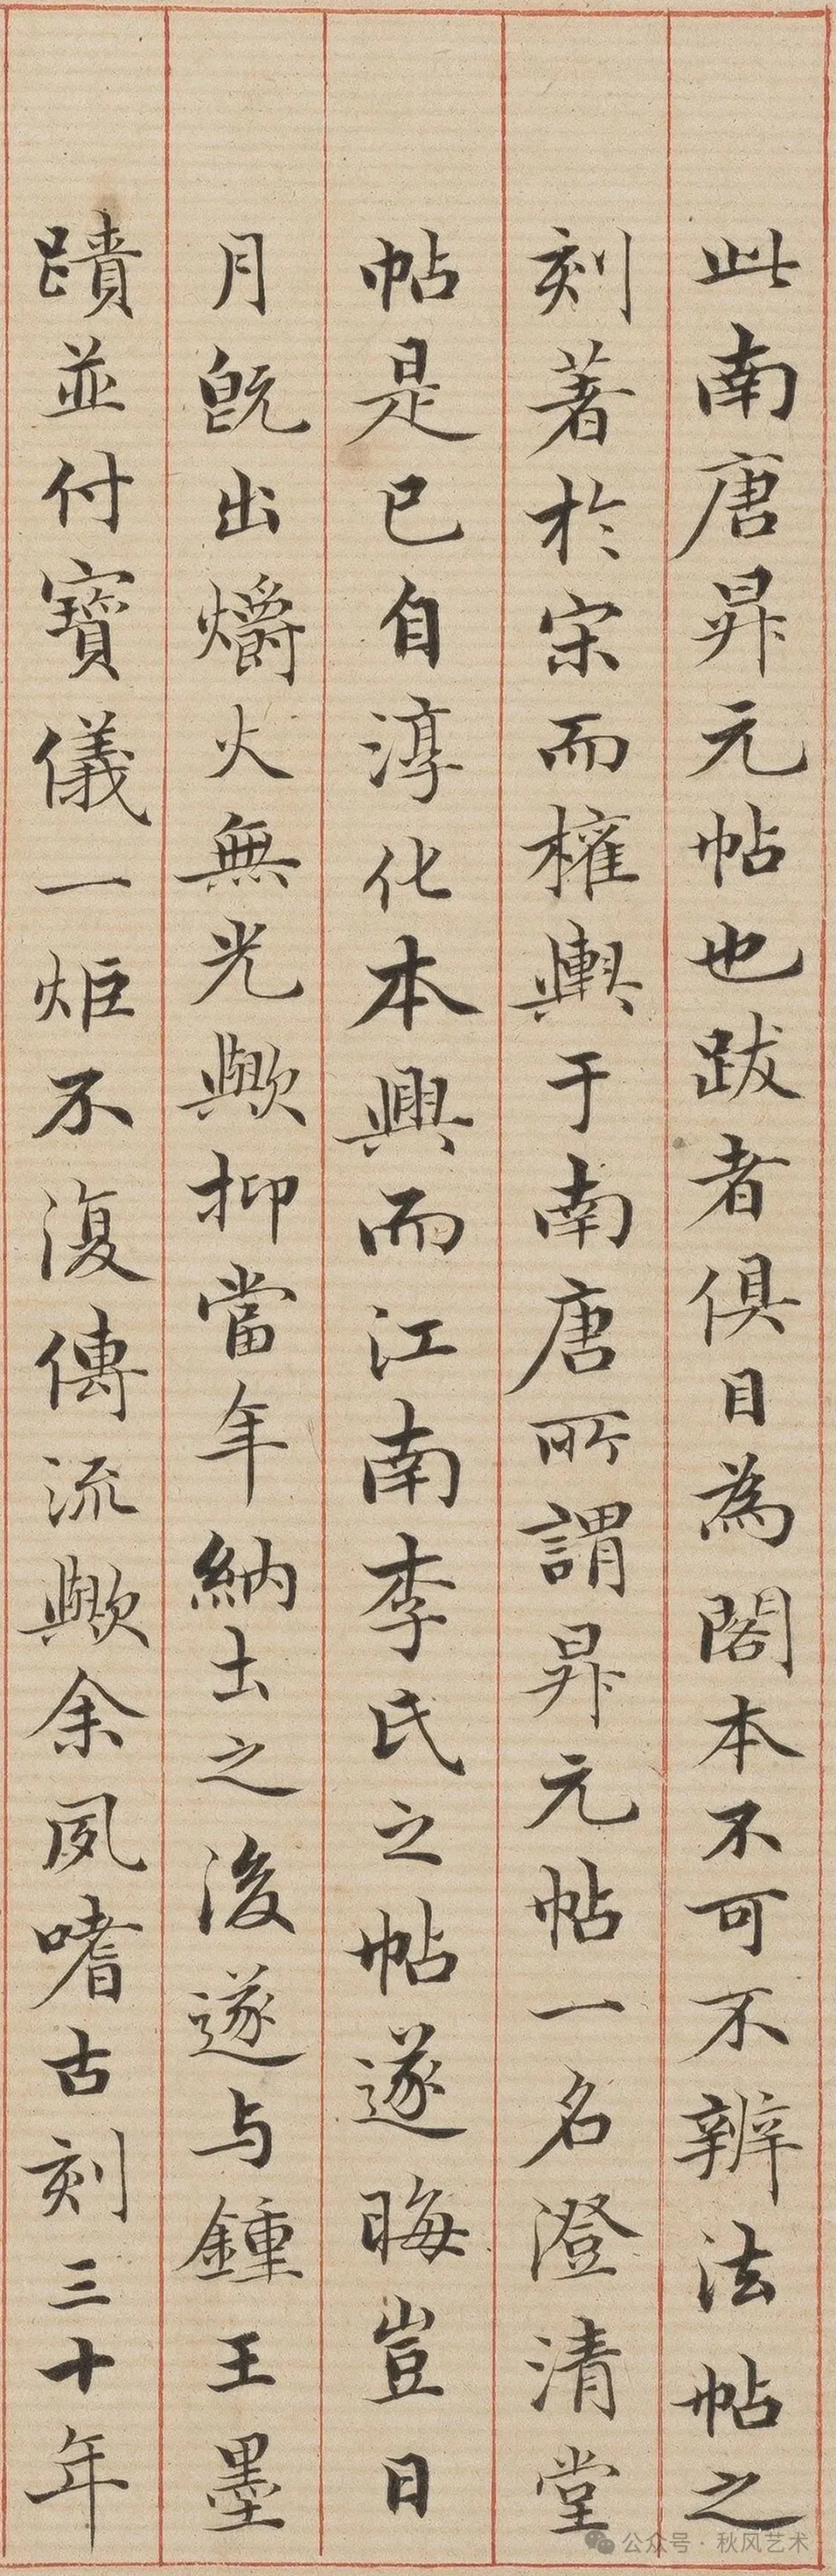 此南唐昇元帖也跋者俱目為閣本不可不辨法帖之
刻著於宋而權輿于南唐所謂昇元帖一名澄清堂
帖是已自淳化本興而江南李氏之帖遂晦豈日
月既出爝火無光歟抑當年納土之後遂与鍾王墨
蹟並付寶儀一炬不復傳流歟余夙嗜古刻三十年
公众号·秋风艺术